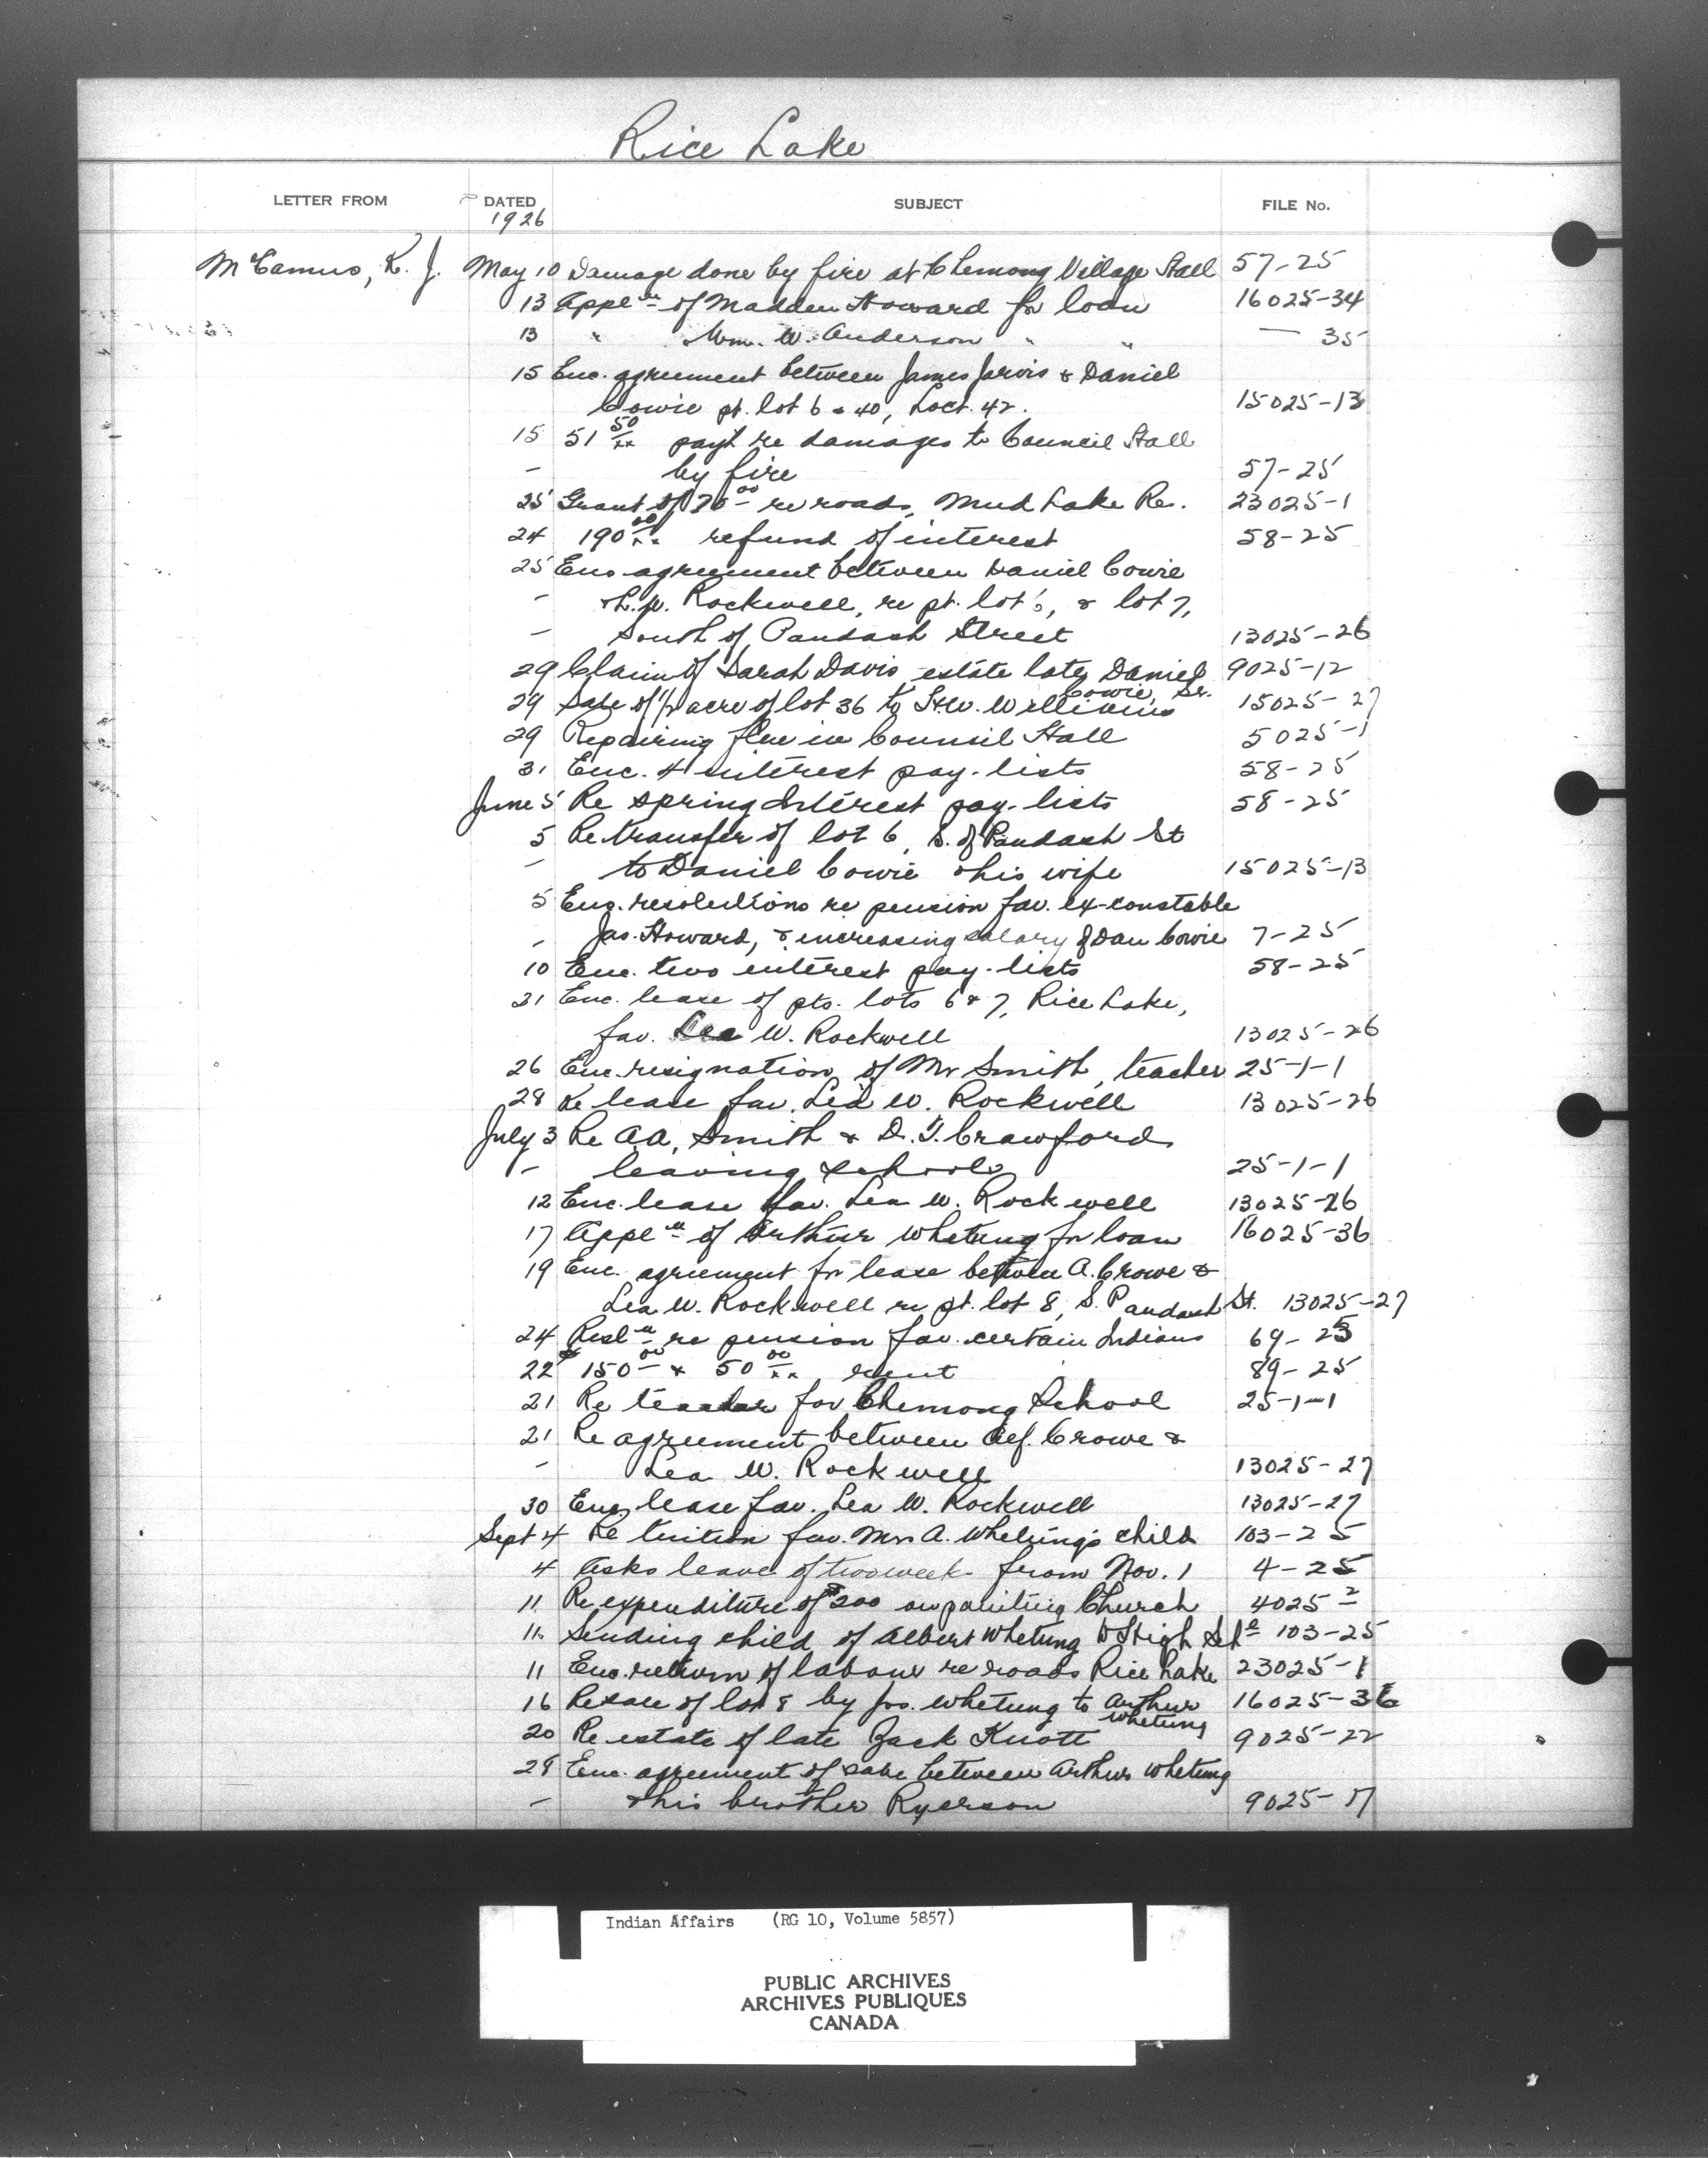 Rice Lake
LETTER FROM DATED SUBJECT FILE No.
1926
McCamus, R. J. May 10 Damage done by fire at Chemong Village Hall 57-25
13 Appl'n of Madden Howard for loan 16025-34
13 " Wm. W. Anderson " " — 35
15 Enc. agreement between James Jarvis & Daniel
Cowie pt. lot 6 - 40, Loct. 42. 15025-13
15 51 50/xx payt re damages to Council Hall
- by fire 57-25
25 Grant of 70 00 re roads, Mud Lake Re. 23025-1
24 190 00/xx refund of interest 58-25
25 Enc agreement between Daniel Cowie
- & L. W. Rockwell, re pt. lot 6, & lot 7,
- South of Paudash Street 13025-26
29 Claim of Sarah Davis, estate late Daniel 9025-12
Cowie, Sr.
29 Sale of 1/2 acre of lot 36 to H.W. Williams 15025-27
29 Repairing flue in Council Hall 5025-1
31 Enc. 4 interest pay-lists 58-25
June 5 Re spring Interest pay-lists 58-25
5 Re transfer of lot 6, S. of Paudash St
- to Daniel Cowie & his wife 15025-13
5 Enc. resolutions re pension fav. ex-constable
- Jas. Howard, & increasing salary of Dan Cowie 7-25
10 Enc. two interest pay-lists 58-25
21 Enc. lease of pts. lots 6 & 7, Rice Lake,
fav. Lea W. Rockwell 13025-26
26 Enc. resignation of Mr Smith, teacher 25-1-1
28 Re lease fav. Lea W. Rockwell 13025-26
July 3 Re A.A. Smith & D. Y. Crawford
- leaving schools 25-1-1
12 Enc. lease fav. Lea W. Rockwell 13025-26
17 Appl'n of Arthur Whetung for loan 16025-36
19 Enc. agreement for lease between A. Crowe &
Lea W. Rockwell re pt. lot 8, S. Paudash St. 13025-27
24 Resl'n re pension fav. certain Indians 69-25
22 $150 00 & 50 00/xx rent 89-25
21 Re teacher for Chemong School 25-1-1
21 Re agreement between Alf. Crowe &
- Lea W. Rockwell 13025-27
30 Enc. lease fav. Lea W. Rockwell 13025-27
Sept 4 Re tuition fav. Mrs A. Whetung's child 103-25
4 Asks leave of two week from Nov. 1 4-25
11 Re expenditure of $200 on painting Church 4025-2
11 Sending child of Albert Whetung to High Schl 103-25
11 Enc. return of labour re roads Rice Lake 23025-1
16 Re sale of lot 8 by Jos. Whetung to Arthur 16025-36
Whetung
20 Re estate of late Zack Knott 9025-22
28 Enc. agreement of sale between Arthur Whetung
- & his brother Ryerson 9025-17
Indian Affairs (RG 10, Volume 5857)
PUBLIC ARCHIVES
ARCHIVES PUBLIQUES
CANADA